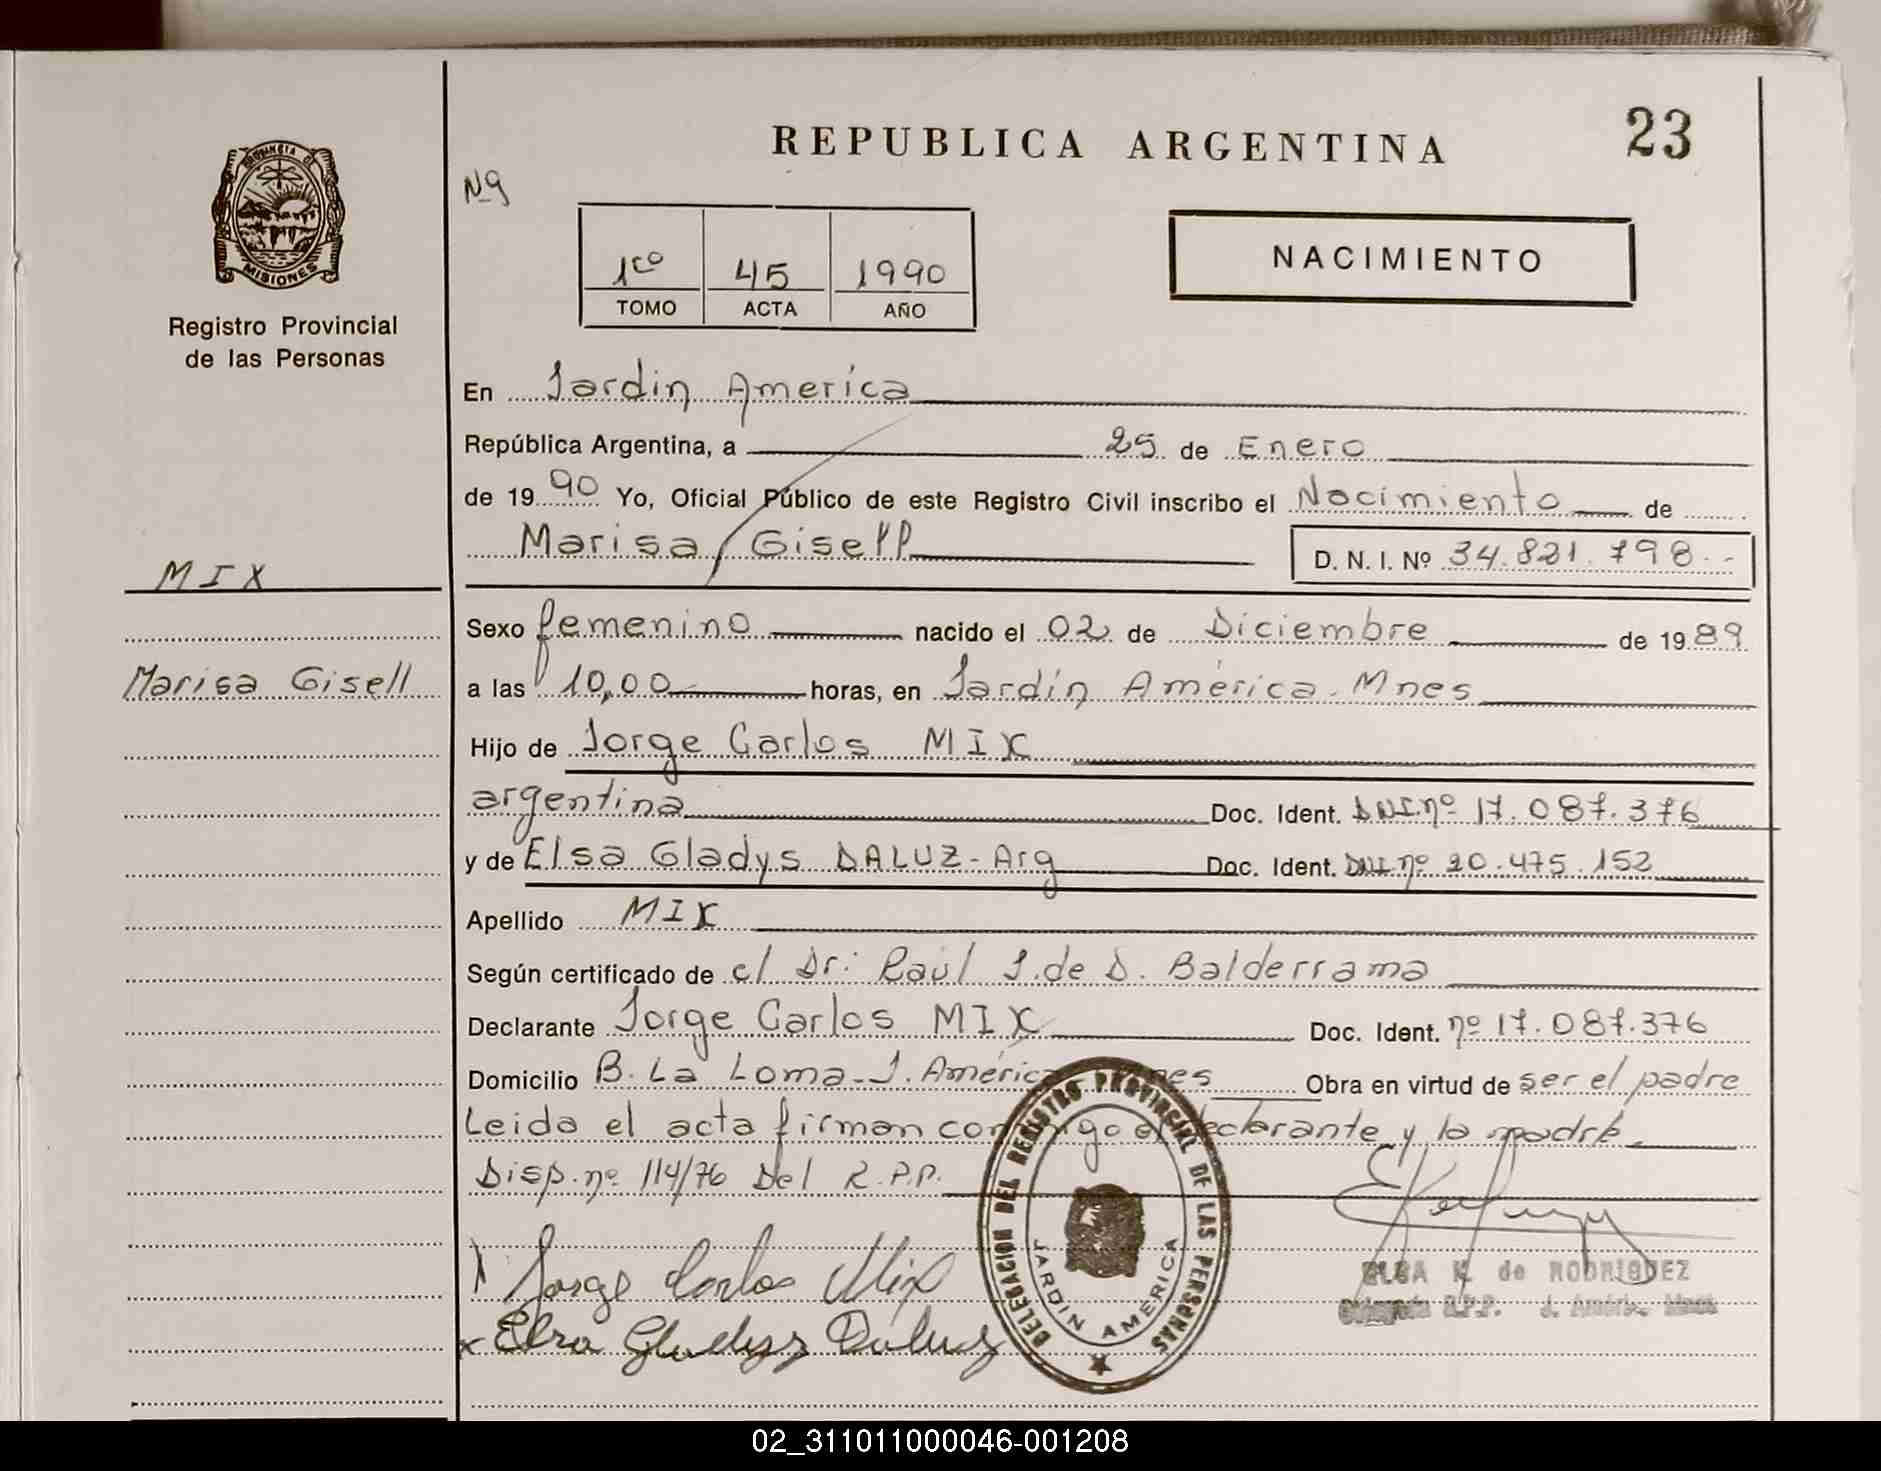 REPUBLICA ARGENTINA
23
PROVINCIA DE
MISIONES
Registro Provincial
de las Personas
Nº
1ro 45 1990
TOMO ACTA AÑO
NACIMIENTO
En Jardin America
República Argentina, a 25 de Enero
de 1990 Yo, Oficial Público de este Registro Civil inscribo el Nacimiento de
Marisa Gisell
D. N. I. Nº 34.821.798.-
MIX
Marisa Gisell
Sexo femenino nacido el 02 de Diciembre de 1989
a las 10,00 horas, en Jardín América - Mnes
Hijo de Jorge Carlos MIX
argentina Doc. Ident. DNI.nº 17.087.376
y de Elsa Gladys DALUZ - Arg Doc. Ident. DNI nº 20.475.152
Apellido MIX
Según certificado de el Dr: Raúl J. de D. Balderrama
Declarante Jorge Carlos MIX Doc. Ident. nº 17.087.376
Domicilio B. La Loma - J. América Mnes Obra en virtud de ser el padre
Leida el acta firman conmigo el declarante y la madre
Disp. nº 114/76 Del R.P.P.
Jorge Carlos Mix
x Elsa Gladys Daluz
DELEGACION DEL REGISTRO PROVINCIAL DE LAS PERSONAS
JARDIN AMERICA
ELSA K. de RODRIGUEZ
R.P.P. J. Améric.
02_311011000046-001208